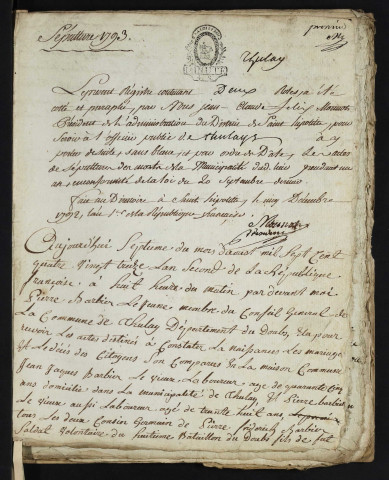 Sepulture 1793.
premier
Thulay
Le présent Registre contenant Deux Roles a été
cotté et paraphé par Nous Jean Claude
Président de l'administration du District de Saint hipolitte pour
Servir à l'officier public de Thulays à y
porter de suite, sans blanc et par ordre de Date, les actes
de Sepultures des morts de la Municipalité dud. lieu pendant un
an conformément de la loi du 20 Septembre dernier
fait au Directoire à Saint hipolitte le Decembre
1792, l'an 1er de la République francaise
Aujourdhui Septieme du mois daoust mil Sept Cent
quatre Vingt treize Lan Second de La République
francoise, a huit heure du matin par devant moi
Pierre Barbier Le Jeune membre du Conseil General de
La Commune de Thulay Département du doubs, Elu pour
recevoir les actes destinés à Constater La naissances Les mariages
et Le décés des Citoyens Son Comparus En La maison Commune
Jean Jaques Barbier Le vieux Laboureur agé de quarante Cinq
ans domicilié dans La municipalité de Thulay et Pierre barbier
Le vieux aussi Laboureur agé de trente huit ans
tous Les deux Cousin Germain de Pierre friderich Barbier
Soldat Volontaire du huitieme Bataillon du Doubs fils de fut